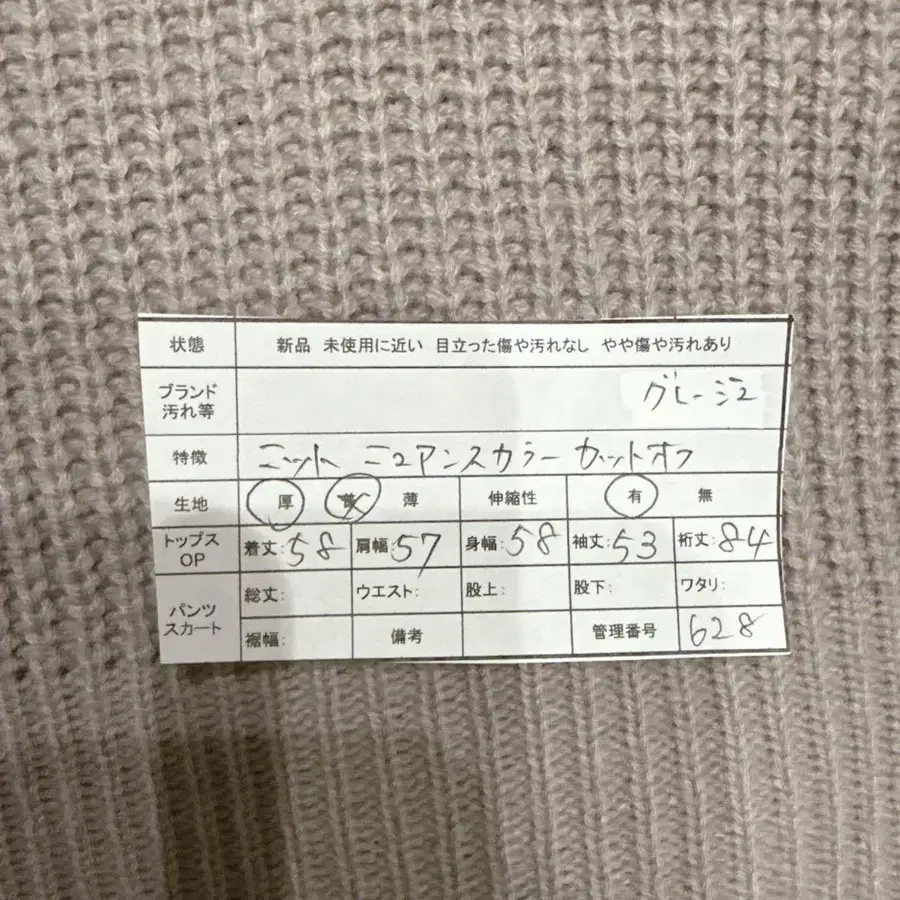 状態 新品 未使用に近い 目立った傷や汚れなし やや傷や汚れあり
ブランド 汚れ等 グレージュ
特徴 ニット ニュアンスカラー カットオフ
生地 厚 薄 伸縮性 有 無
トップス OP 着丈:58 肩幅:57 身幅:58 袖丈:53 裄丈:84
パンツ スカート 総丈: ウエスト: 股上: 股下: ワタリ:
裾幅: 備考 管理番号 628